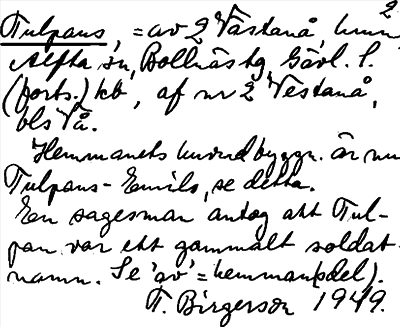 2
Tulpans, = av 2 Västanå, hmn,
Alfta sn, Bollnäs tg Gävl. l.
(forts.) kb, af nr 2 Vestanå,
bls Vå.
Hemmanets huvudbyggn. är nu
Tulpans-Emils, se detta.
En sagesman antog att Tul-
pan var ett gammalt soldat-
namn. Se 'av' = hemman(sdel).
T. Birgerson 1949.